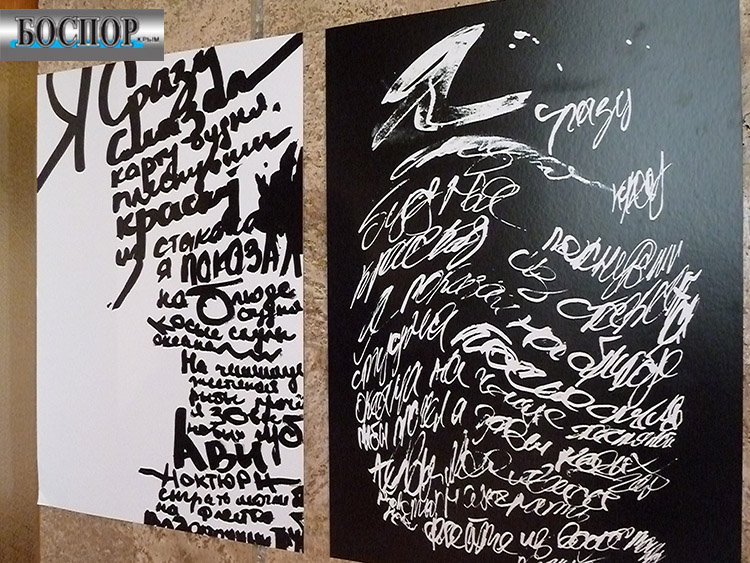 БОСПОР
КРЫМ
Я Сразу
смазал
карту будня,
плеснувши
краску
из стакана
я ПОКАЗАЛ
на блюде
студня
косые скулы
океана
На чешуе
жестяной
рыбы прочёл
я зовы
новых губ
А ВЫ
НОКТЮРН
сыграть могли бы
на флейте
водосточных
Я
сразу
карту
будня
плеснувши
краску
из стакана
я показал на блюде
студня косые скулы
океана на чешуе жестяной
рыбы прочёл я зовы новых
губ
А вы
ноктюрн сыграть
флейте из водосточных